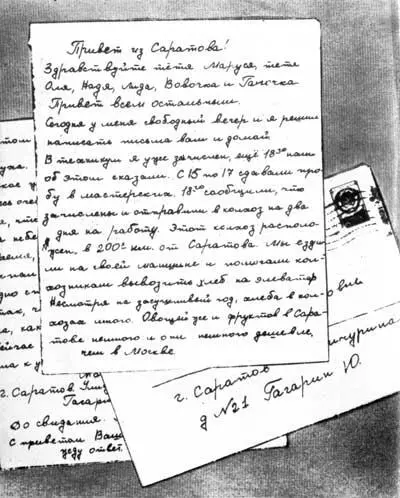 Привет из Саратова!
Здравствуйте тётя Маруся, тётя
Оля, Надя, Лида, Вовочка и Танечка
Привет всем остальным.
Сегодня у меня свободный вечер и я решил
написать письма вам и домой
В техникум я уже зачислен, ещё 18го нам
об этом сказали. С 15 по 17 сдавали про
бу в мастерских. 18го сообщили, что
зачислены и отправили в колхоз на два
дня на работу. Этот колхоз располо
жен в 200х км. от Саратова. Мы езди
ли на своей машине и помогали кол
хозникам вывозить хлеб на элеватор
Несмотря на засушливый год, хлеба в кол-
хозах много. Овощей же и фруктов в Сара-
тове немного и они немного дешевле,
чем в Москве
г. Саратов
Гагари
До свидания.
С приветом Ваш
жду ответ
г. Саратов
Мичурина
д №21 Гагарин Ю.